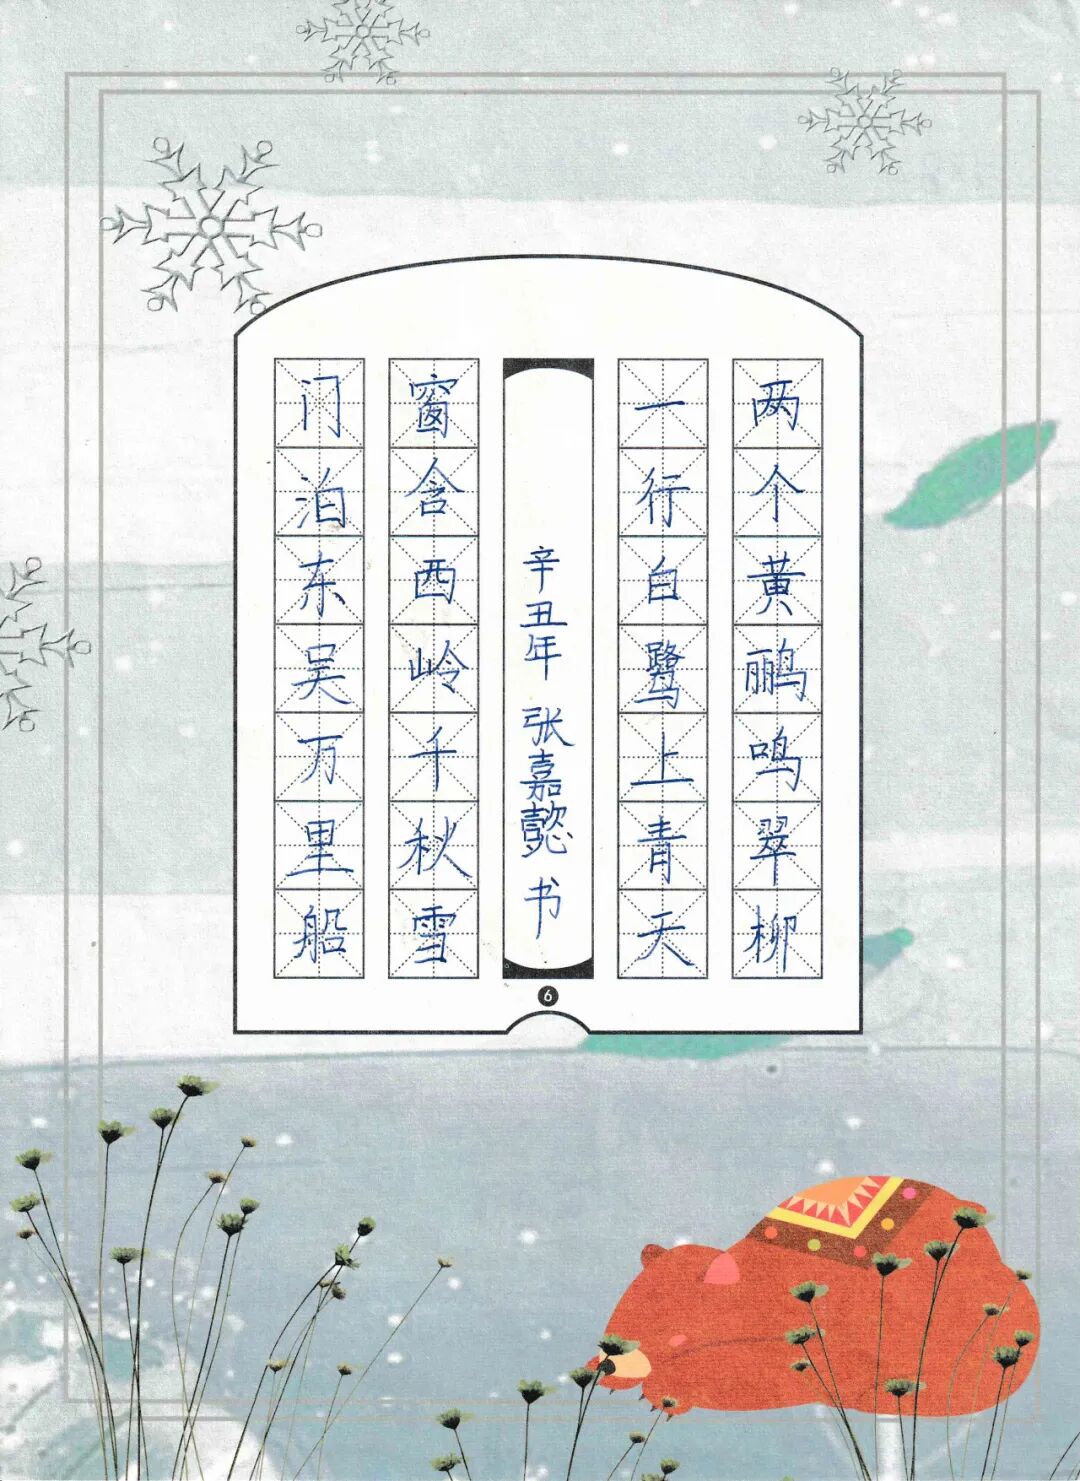 两个黄鹂鸣翠柳
一行白鹭上青天
辛丑年 张嘉懿书
窗含西岭千秋雪
门泊东吴万里船
6